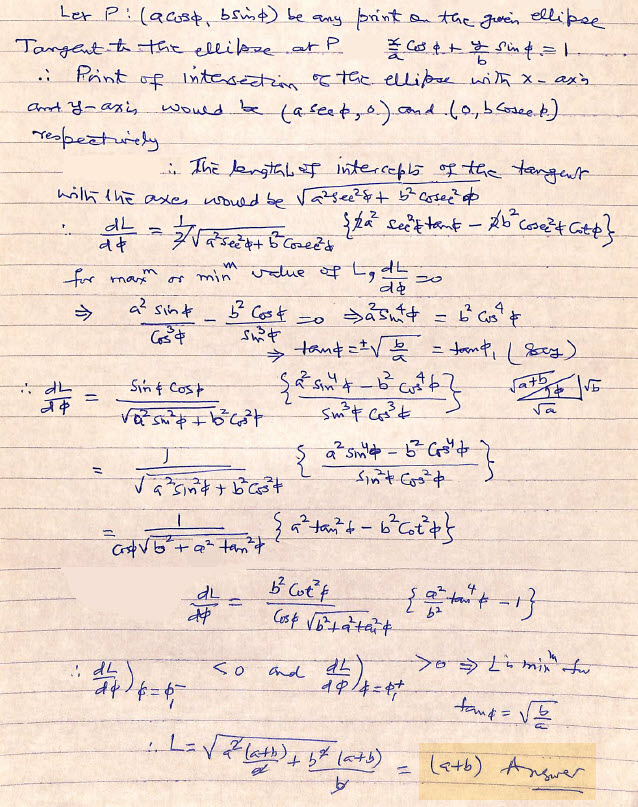 Let P : (a cosϕ, b sinϕ) be any print on the given ellipse
Tangent to the ellipse at P x/a cos ϕ + y/b sin ϕ = 1
∴ Print of intersection of the ellipse with x-axis
and y-axis would be (a secϕ, 0) and (0, b cosecϕ)
respectively
∴ The length of intercepts of the tangent
with the axes would be √(a²sec²ϕ + b²cosec²ϕ)
∴ dL/dϕ = 1/(2√(a²sec²ϕ + b²cosec²ϕ)) {2a² sec²ϕ tanϕ − 2b²cosec²ϕ cotϕ}
for maxᵐ or minᵐ value of L, dL/dϕ = 0
⇒ a² sinϕ/cos³ϕ − b² cosϕ/sin³ϕ = 0 ⇒ a² sin⁴ϕ = b² cos⁴ϕ
⇒ tanϕ = ±√(b/a) = tanϕ₁ (say)
∴ dL/dϕ = sinϕ cosϕ/√(a² sin²ϕ + b² cos²ϕ) {(a² sin⁴ϕ − b² cos⁴ϕ)/(sin³ϕ cos³ϕ)} √(a+b) ϕ √b √a
= 1/√(a² sin²ϕ + b² cos²ϕ) {(a² sin⁴ϕ − b² cos⁴ϕ)/(sin²ϕ cos²ϕ)}
= 1/(cosϕ√(b² + a² tan²ϕ)) {a² tan²ϕ − b² cot²ϕ}
dL/dϕ = b² cot²ϕ/(cosϕ √(b² + a² tan²ϕ)) {a²/b² tan⁴ϕ − 1}
∴ dL/dϕ)ϕ=ϕ₁⁻ < 0 and dL/dϕ)ϕ=ϕ₁⁺ > 0 ⇒ L is minᵐ for
tanϕ = √(b/a)
∴ L = √(a²(a+b)/a + b²(a+b)/b) = (a+b) Answer